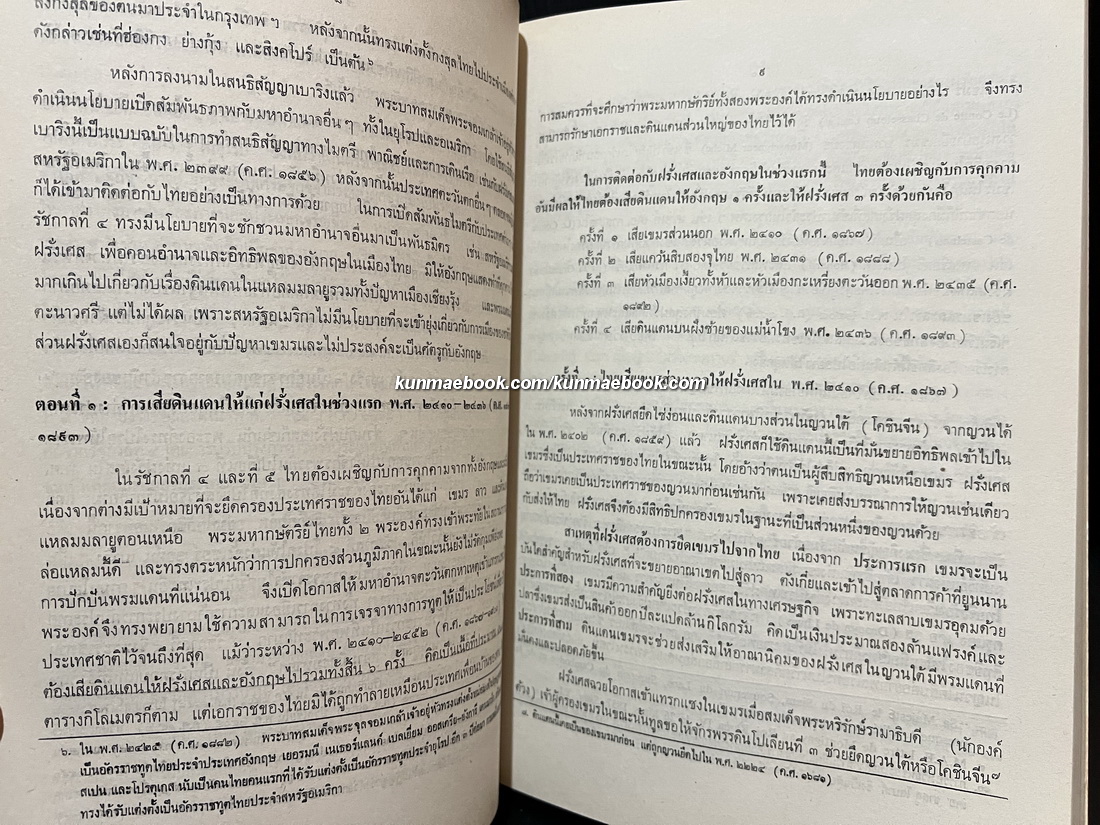 ส่งกงสุลของตนมาประจำในกรุงเทพ ฯ หลังจากนั้นทรงแต่งตั้งกงสุลไทยไปประจำ
ดังกล่าวเช่นที่ฮ่องกง ย่างกุ้ง และสิงคโปร์ เป็นต้น๖
หลังการลงนามในสนธิสัญญาเบาริงแล้ว พระบาทสมเด็จพระจอมเกล้าเจ้าอยู่หัว
ดำเนินนโยบายเปิดสัมพันธภาพกับมหาอำนาจอื่น ๆ ทั้งในยุโรปและอเมริกา โดยใช้
เบาริงนี้เป็นแบบฉบับในการทำสนธิสัญญาทางไมตรี พาณิชย์และการเดินเรือ เช่นกับ
สหรัฐอเมริกาใน พ.ศ. ๒๓๙๙ (ค.ศ. ๑๘๕๖) หลังจากนั้นประเทศตะวันตกอื่นๆ
ก็ได้เข้ามาติดต่อกับไทยอย่างเป็นทางการด้วย ในการเปิดสัมพันธไมตรีกับประเทศ
รัชกาลที่ ๔ ทรงมีนโยบายที่จะชักชวนมหาอำนาจอื่นมาเป็นพันธมิตร เช่น สหรัฐอเมริกา
ฝรั่งเศส เพื่อคอนอำนาจและอิทธิพลของอังกฤษในเมืองไทย มิให้อังกฤษแสดง
มากเกินไปเกี่ยวกับเรื่องดินแดนในแหลมมลายูรวมทั้งปัญหาเมืองเชียงรุ้ง และ
ตะนาวศรี แต่ไม่ได้ผล เพราะสหรัฐอเมริกาไม่มีนโยบายที่จะเข้ายุ่งเกี่ยวกับการเมือง
ส่วนฝรั่งเศสเองก็สนใจอยู่กับปัญหาเขมรและไม่ประสงค์จะเป็นศัตรูกับอังกฤษ
ตอนที่ ๑ : การเสียดินแดนให้แก่ฝรั่งเศสในช่วงแรก พ.ศ. ๒๔๑๐–๒๔๓๖ (ค.ศ.
๑๘๙๓ )
ในรัชกาลที่ ๔ และที่ ๕ ไทยต้องเผชิญกับการคุกคามจากทั้งอังกฤษ
เนื่องจากต่างมีเป้าหมายที่จะยึดครองประเทศราชของไทยอันได้แก่ เขมร ลาว และ
แหลมมลายูตอนเหนือ พระมหากษัตริย์ไทยทั้ง ๒ พระองค์ทรงเข้าพระทัยใน
ล่อแหลมนี้ดี และทรงตระหนักว่าการปกครองส่วนภูมิภาคในขณะนั้นยังไม่รัดกุม
การปักปันพรมแดนที่แน่นอน จึงเปิดโอกาสให้มหาอำนาจตะวันตกหาเหตุ
พระองค์จึงทรงพยายามใช้ความสามารถในการเจรจาทางการทูตให้เป็นประโยชน์
ประเทศชาติไว้จนถึงที่สุด แม้ว่าระหว่าง พ.ศ. ๒๔๑๐–๒๔๕๒ (ค.ศ. ๑๘๖๗
ต้องเสียดินแดนให้ฝรั่งเศสและอังกฤษไปรวมทั้งสิ้น ๖ ครั้ง คิดเป็นเนื้อที่ประมาณ
ตารางกิโลเมตรก็ตาม แต่เอกราชของไทยมิได้ถูกทำลายเหมือนประเทศเพื่อนบ้าน
๖. ใน พ.ศ. ๒๔๒๕ (ค.ศ. ๑๘๘๒) พระบาทสมเด็จพระจุลจอมเกล้าเจ้าอยู่หัวทรงแต่งตั้ง
เป็นอัครราชทูตไทยประจำประเทศอังกฤษ เยอรมนี เนเธอร์แลนด์ เบลเยียม ออสเตรีย-ฮังการี
สเปน และโปรตุเกส นับเป็นคนไทยคนแรกที่ได้รับแต่งตั้งเป็นอัครราชทูตประจำยุโรป อีก ๑ ปีต่อมา
ทรงได้รับแต่งตั้งเป็นอัครราชทูตไทยประจำสหรัฐอเมริกา
๙
การสมควรที่จะศึกษาว่าพระมหากษัตริย์ทั้งสองพระองค์ได้ทรงดำเนินนโยบายอย่างไร จึงทรง
สามารถรักษาเอกราชและดินแดนส่วนใหญ่ของไทยไว้ได้
ในการติดต่อกับฝรั่งเศสและอังกฤษในช่วงแรกนี้ ไทยต้องเผชิญกับการคุกคาม
อันมีผลให้ไทยต้องเสียดินแดนให้อังกฤษ ๑ ครั้งและให้ฝรั่งเศส ๓ ครั้งด้วยกันคือ
ครั้งที่ ๑ เสียเขมรส่วนนอก พ.ศ. ๒๔๑๐ (ค.ศ. ๑๘๖๗)
ครั้งที่ ๒ เสียแคว้นสิบสองจุไทย พ.ศ. ๒๔๓๑ (ค.ศ. ๑๘๘๘)
ครั้งที่ ๓ เสียหัวเมืองเงี้ยวทั้งห้าและหัวเมืองกะเหรี่ยงตะวันออก พ.ศ. ๒๔๓๕ (ค.ศ.
๑๘๙๒)
ครั้งที่ ๔ เสียดินแดนบนฝั่งซ้ายของแม่น้ำโขง พ.ศ. ๒๔๓๖ (ค.ศ. ๑๘๙๓)
kunmaebook.com/kunmaebook.com
ให้ฝรั่งเศสใน พ.ศ. ๒๔๑๐ (ค.ศ. ๑๘๖๗ )
หลังจากฝรั่งเศสยึดไซ่ง่อนและดินแดนบางส่วนในญวนใต้ (โคชินจีน) จากญวนได้
ใน พ.ศ. ๒๔๐๒ (ค.ศ. ๑๘๕๙) แล้ว ฝรั่งเศสก็ใช้ดินแดนนี้เป็นที่มั่นขยายอิทธิพลเข้าไปใน
เขมรซึ่งเป็นประเทศราชของไทยในขณะนั้น โดยอ้างว่าตนเป็นผู้สืบสิทธิญวนเหนือเขมร ฝรั่งเศส
ถือว่าเขมรเคยเป็นประเทศราชของญวนมาก่อนเช่นกัน เพราะเคยส่งบรรณาการให้ญวนเช่นเดียว
กับส่งให้ไทย ฝรั่งเศสจึงต้องมีสิทธิปกครองเขมรในฐานะที่เป็นส่วนหนึ่งของญวนด้วย
สาเหตุที่ฝรั่งเศสต้องการยึดเขมรไปจากไทย เนื่องจาก ประการแรก เขมรจะเป็น
บันไดสำคัญสำหรับฝรั่งเศสที่จะขยายอาณาเขตไปสู่ลาว ตังเกี๋ยและเข้าไปสู่ตลาดการค้าที่ยูนนาน
ประการที่สอง เขมรมีความสำคัญยิ่งต่อฝรั่งเศสในทางเศรษฐกิจ เพราะทะเลสาบเขมรอุดมด้วย
ปลาซึ่งเขมรส่งเป็นสินค้าออกปีละแปดล้านกิโลกรัม คิดเป็นเงินประมาณสองล้านแฟรงค์และ
ประการที่สาม ดินแดนเขมรจะช่วยส่งเสริมให้อาณานิคมของฝรั่งเศสในญวนใต้มีพรมแดนที่
มั่นคงและปลอดภัยขึ้น
ฝรั่งเศสฉวยโอกาสเข้าแทรกแซงในเขมรเมื่อสมเด็จพระหริรักษ์รามาธิบดี (นักองค์
ด้วง) เจ้าผู้ครองเขมรในขณะนั้นทูลขอให้จักรพรรดินโปเลียนที่ ๓ ช่วยยึดญวนใต้หรือโคชินจีน๗
๗. ดินแดนนี้เคยเป็นของเขมรมาก่อน แต่ถูกญวนยึดไปใน พ.ศ. ๒๒๒๔ (ค.ศ. ๑๖๘๑)